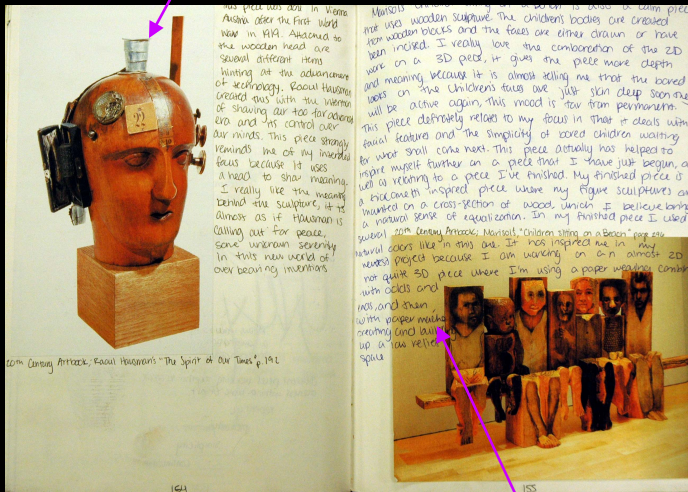 this piece was done in Vienna
Austria after the First World
War in 1919. Attached to
the wooden head are
several different items
hinting at the advancement
of technology. Raoul Hausman
created this with the intention
of showing our too far advanced
era and its control over
our minds. This piece strongly
reminds me of my intended
focus because it uses
a head to show meaning.
I really like the meaning
behind the sculpture, it is
almost as if Hausman is
calling out for peace,
some unknown serenity
in this new world of
over bearing inventions
22
20th Century Artbook, Raoul Hausman's "The Spirit of Our Times" p.192
164
Marisol's Children Sitting on a Bench is also a calm piece
that uses wooden sculpture. The children's bodies are created
from wooden blocks and the faces are either drawn or have
been incised. I really love the combination of the 2D
work on a 3D piece, it gives the piece more depth
and meaning because it is almost telling me that the bored
looks on the children's faces are just skin deep soon they
will be active again, this mood is far from permanent.
This piece definitely relates to my focus in that it deals with
facial features and the simplicity of bored children waiting
for what shall come next. This piece actually has helped to
inspire myself further on a piece that I have just begun, as
well as relating to a piece I've finished. My finished piece is
a Giacometti inspired piece where my figure sculptures are
mounted on a cross-section of wood, which I believe brings
a natural sense of equalization. In my finished piece I used
several
20th Century Artbook, Marisol's, "Children Sitting on a Bench" page 296
natural colors like in this one. It has inspired me in my
newest project because I am working on an almost 2D
not quite 3D piece where I'm using a paper weaving
with odds and
ends, and then
with paper mache
creating and building
up a low relief
space
155